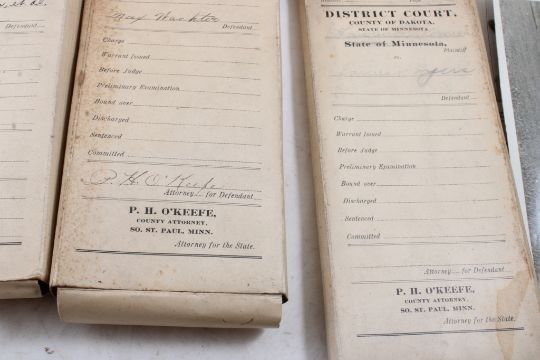 Max Wachter
Defendant
Charge
Warrant Issued
Before Judge
Preliminary Examination
Bound over
Discharged
Sentenced
Committed
P. H. O'Keefe
Attorney for Defendant
P. H. O'KEEFE,
COUNTY ATTORNEY,
SO. ST. PAUL, MINN.
Attorney for the State.
DISTRICT COURT,
COUNTY OF DAKOTA,
STATE OF MINNESOTA
State of Minnesota,
Plaintiff
vs.
Defendant
Charge
Warrant Issued
Before Judge
Preliminary Examination
Bound over
Discharged
Sentenced
Committed
Attorney for Defendant
P. H. O'KEEFE,
COUNTY ATTORNEY,
SO. ST. PAUL, MINN.
Attorney for the State.